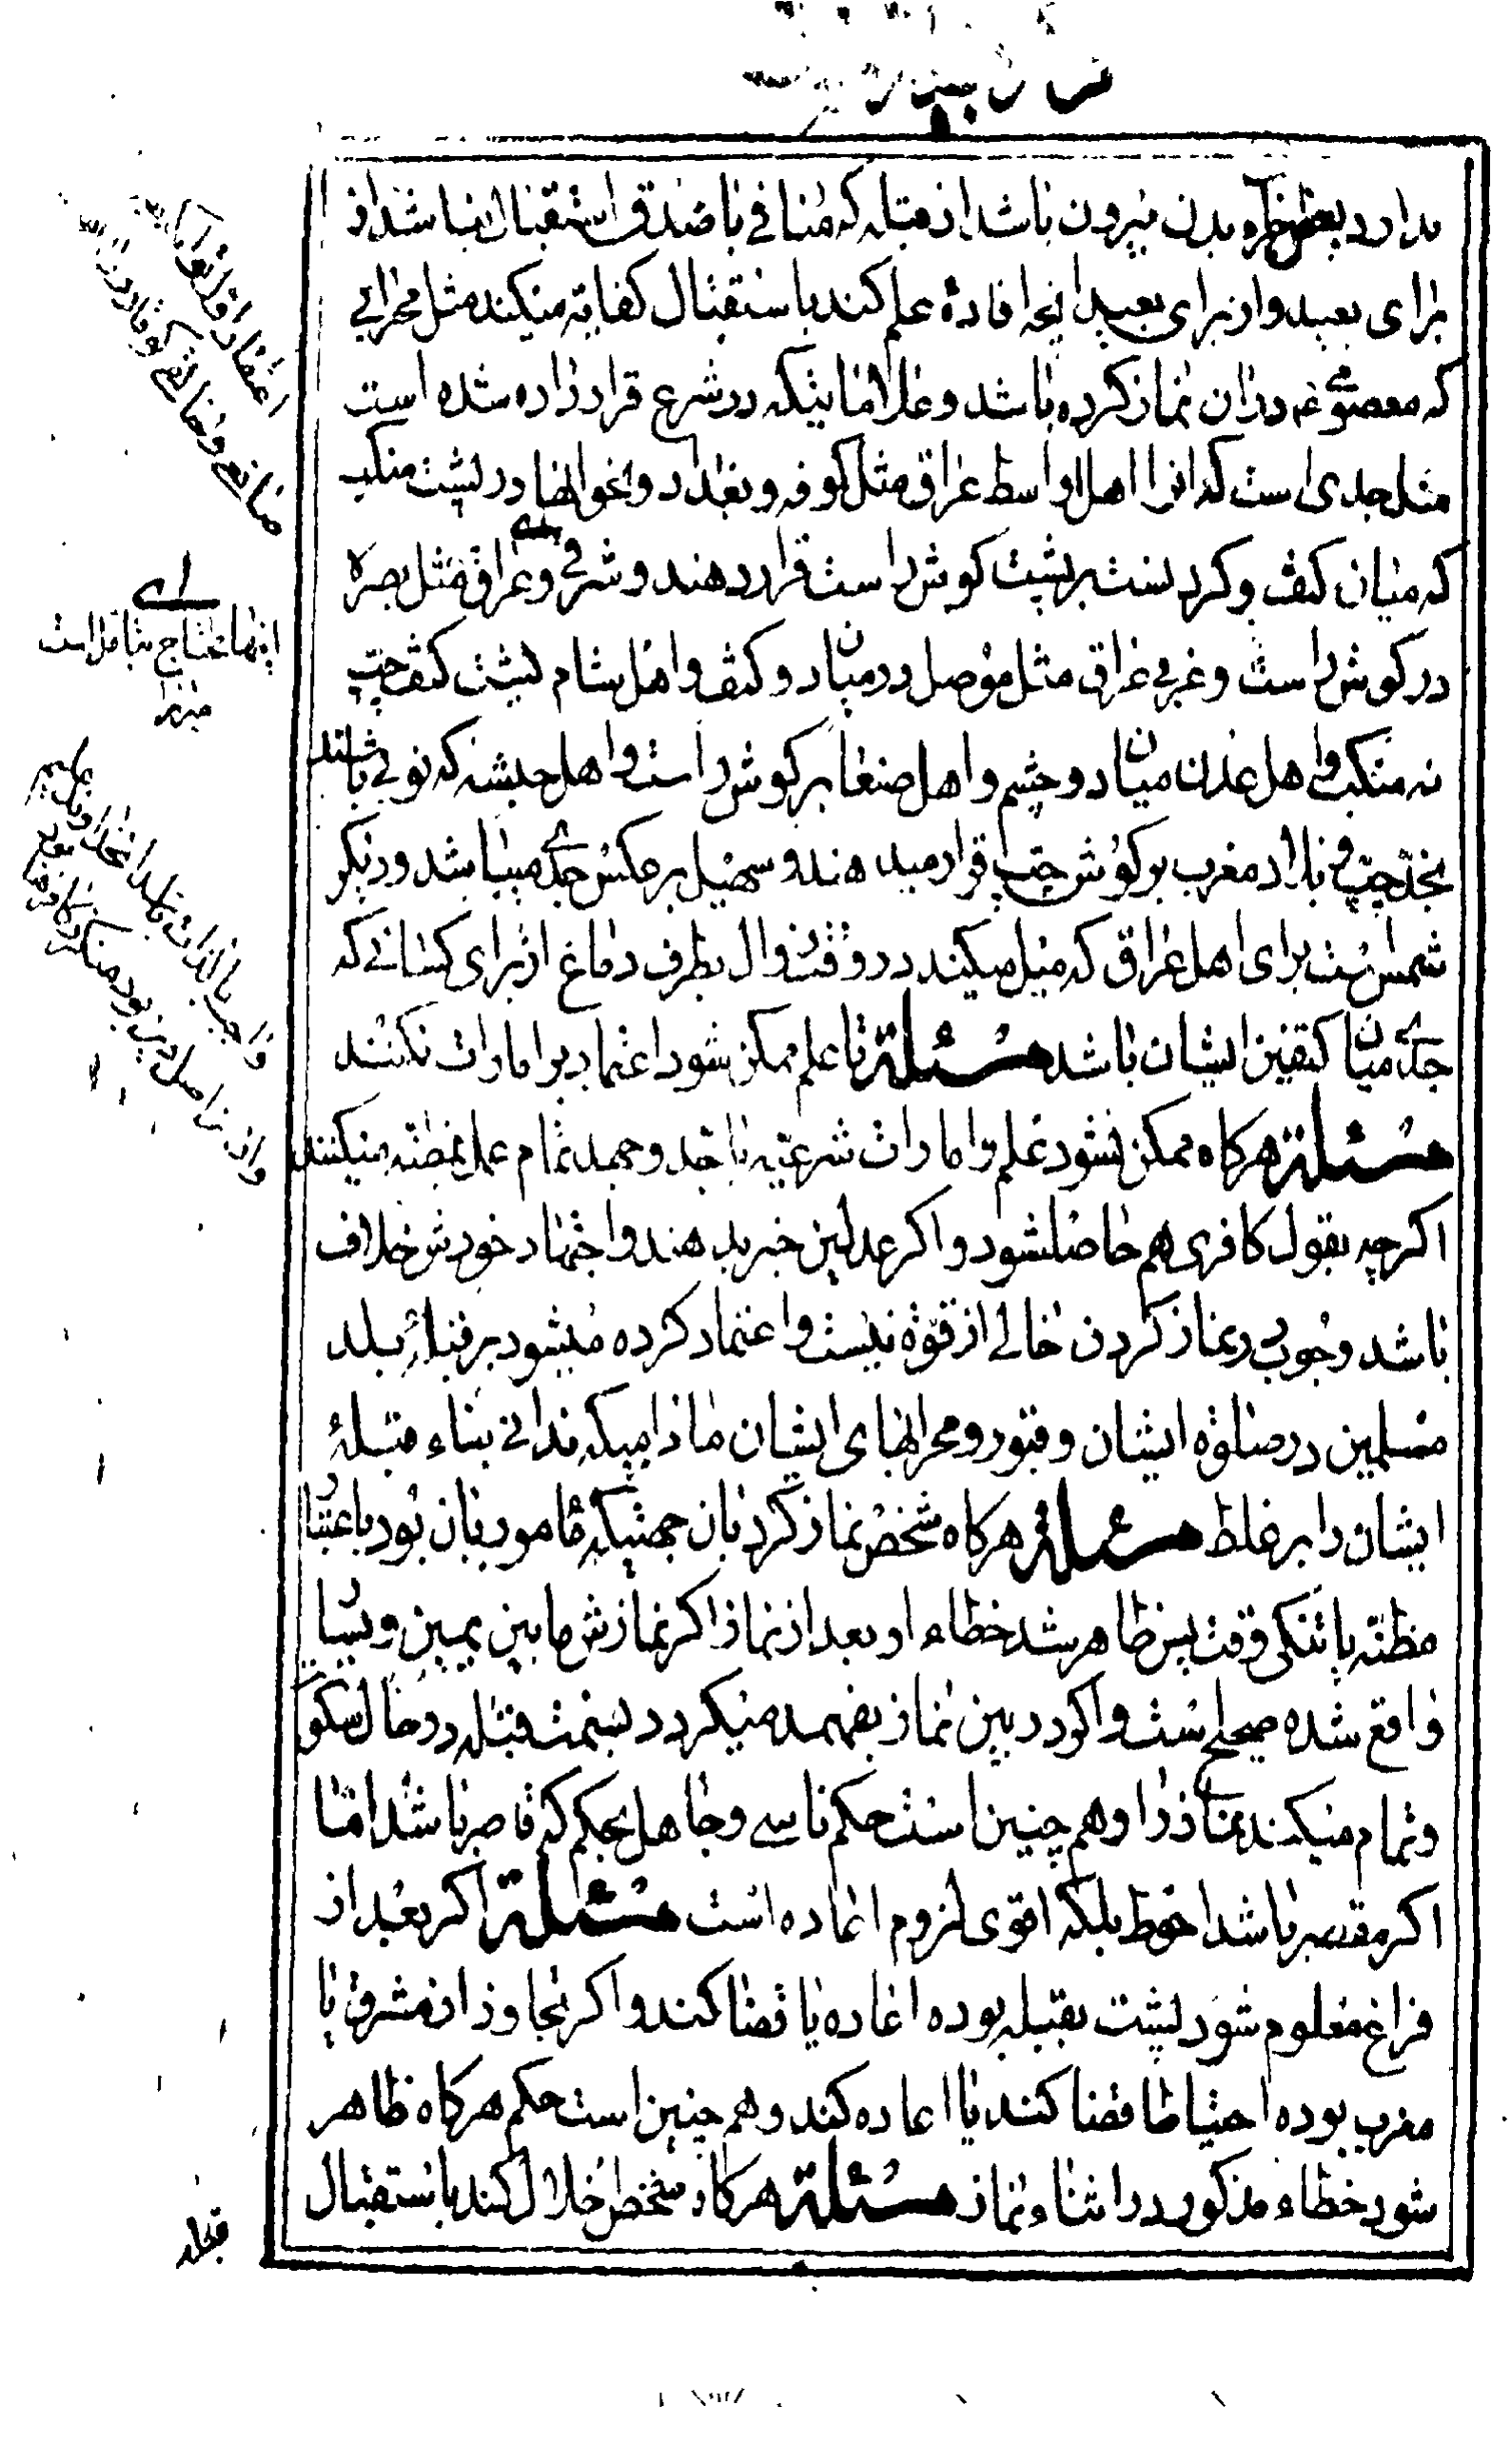 ندارد بعض اجزاء بدن بیرون باشد از قبله که منافی با صدق استقبال نباشد از
برای بعید و از برای بعید آنچه افادهٔ علم کند باستقبال کفایة میکند مثل محرابی
که معصومی در آن نماز کرده باشد و علاماتیکه در شرع قرار داده شده است
مثل جدی است که آنرا اهل اواسط عراق مثل کوفه و بغداد و نحو آنها در پشت منکب
که میان کتف و کردنست بر پشت کوش راست قرار دهند و شرقی عراق مثل بصره
در کوش راست و غربی عراق مثل موصل در میان دو کتف و اهل شام پشت کتف چپ
نه منکب و اهل عدن میان دو چشم و اهل صنعا بر کوش راست و اهل حبشه که نوبی باشند
بخدّ چپ و بلاد مغرب بر کوش چپ قرار میدهند و سهیل بر عکس جدی میباشد و دیکر
شمس است برای اهل عراق که میل میکند در وقت زوال بطرف دماغ از برای کسانی که
جدی میان کتفین ایشان باشد مسئلة تا علم ممکن شود اعتماد بر امارات نکنند
مسئلة هرکاه ممکن نشود علم و امارات شرعیه با جد و جهد تمام عمل بمظنّه میکنند
اکرچه بقول کافری هم حاصلشود و اکر عدلین خبر بدهند و اجتهاد خودش خلاف
باشد وجوب دو نماز کردن خالی از قوّة نیست و اعتماد کرده میشود بر قبلهٔ بلد
مسلمین در صلوة ایشان و قبور و محرابهای ایشان مادامیکه ندانی بناء قبلهٔ
ایشان را بر غلط مسئلة هرکاه شخص نماز کرد بان جهتیکه مامور بان بود باعتبار
مظنّه یا تنکی وقت پس ظاهر شد خطاء او بعد از نماز اکر نمازش مابین یمین و یسار
واقع شده صحیح است و اکر در بین نماز بفهمد میکردد بسمت قبله در حال سکوت
و تمام میکند نماز را و هم چنین است حکم ناسی و جاهل بحکم که قاصر باشد امّا
اکر مقصر باشد احوط بلکه اقوی لزوم اعاده است مسئلة اکر بعد از
فراغ معلوم شود پشت بقبله بوده اعاده یا قضا کند و اکر تجاوز از مشرق یا
مغرب بوده احتیاطا قضا کند یا اعاده کند و هم چنین است حکم هرکاه ظاهر
شود خطاء مذکور در اثناء نماز مسئلة هرکاه شخص اخلال کند باستقبال
اینها محتاج بتامل است
میرزا